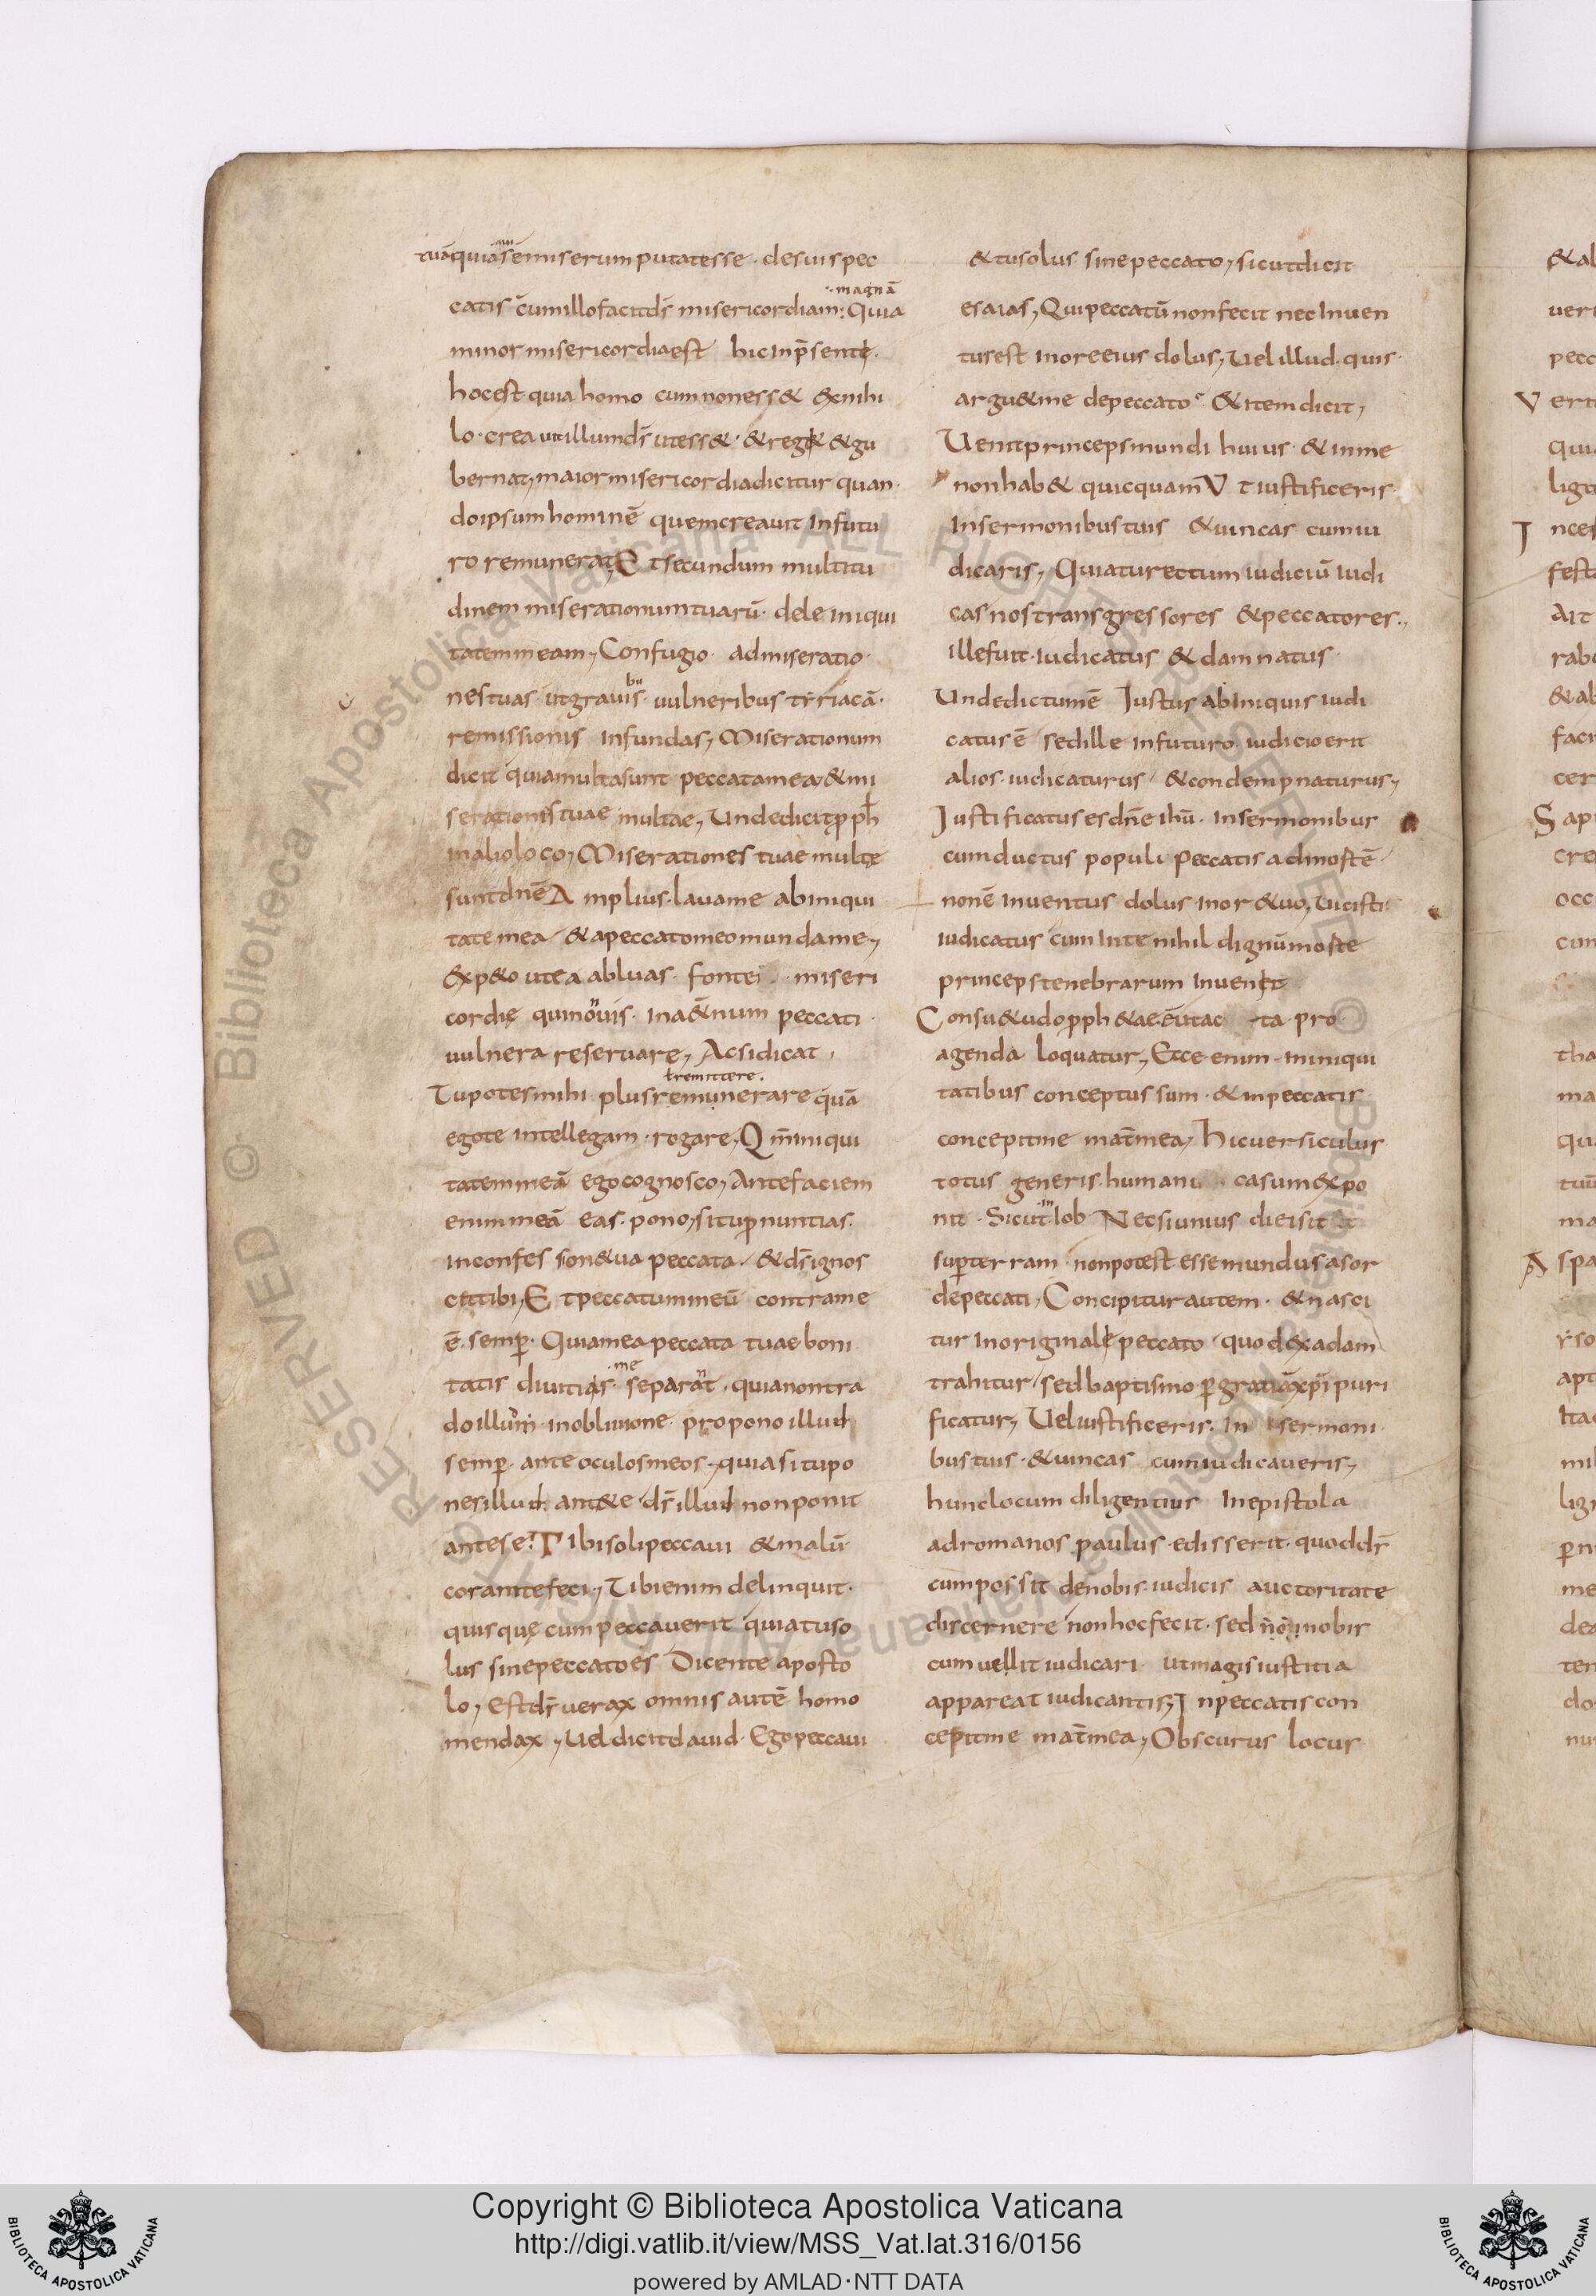 tuā quia sēmiserum putat esse · de suis pec
·· magnā
catis cum illo facit d̄s misericordiam: Quia
minor misericordia est hic in p̄sente.
hoc est quia homo cum non ess& & ex nihi
lo · creauit illum d̄s ut ess& · & reg& & gu
bernat, maior misericordia dicitur quan
do ipsum hominē quem creauit In futu
ro remunerat, Et secundum multitu
dinem miserationum tuarū · dele iniqui
tatem meam, Confugio · ad miseratio
nes tuas · ut grauib;s · uulneribus tiriacā ·
remissionis Infundas, Miserationum
dicit quia multa sunt peccata mea & mi
serationes tuae multae, Unde dicit pph
In alio loco, Miserationes tuae multę
sunt dn̄e A mplius · laua me ab iniqui
tate mea & a peccato meo munda me,
Exp&o ut ea abluas · fonte miseri
cordię qui nouis · In a&ernum peccati
uulnera reseruare, Ac si dicat,
ł remittere ·
Tu potes mihi plus remunerare quā
ego te Intellegam · rogare, Qm̄ iniqui
tatem meā ego cognosco, Ante faciem
enim meā eas · pono, si tu p̄nuntias ·
In confession& ua peccata · & d̄s ignos
cit tibi, Et peccatum meū contra me
ē · semp · Quia mea peccata tuae boni
tatis diuitias · me separant · quia non tra
do illum · in obliuione · propono illud
semp · ante oculos meos, quia si tu po
nes illud ant& e · d̄s illud non ponit
ante se: T ibi soli peccaui & malū
coram te feci, Tibi enim delinquit ·
quisquę cum peccauerit quia tu so
lus sine peccato es Dicente aposto
lo, Est d̄s uerax omnis autē homo
mendax, Uel dicit dauid · Ego peccaui
& tu solus sine peccato, sicut dicit
esaias, Qui peccatū non fecit nec Inuen
tus est In ore eius dolus, Uel illud · quis
argu& me de peccato & item dicit,
Uenit princeps mundi huius · & in me
non hab& quicquam V t iustificeris
In sermonibus tuis & uincas cum iu
dicaris, Quia tu rectum iudiciū iudi
cas nos transgressores & peccatores ··
ille fuit · iudicatus & damnatus ·
Unde dictum ē Iustus ab Iniquis iudi
catus ē sed ille In futuro iudicio erit
alios · iudicaturus & condempnaturus,
Iustificatus es dn̄e ihū · In sermonibus
cum ductus populi peccatis ad mostē
non ē Inuentus dolus In or& uo, Uicisti
iudicatus cum In te nihil dignū moste
princeps tenebrarum Inuenit
Consu&udo pph&ae ē
agenda loquatur, Ecce enim · in iniqui
tatibus conceptus sum · & in peccatis
concepit me mat̄ mea, Hic uersiculus
totus generis · humani casum expo
nit · Sicut in Iob Nec si unius diei sit
sup terram non potest esse mundus a sor
de peccati, Concipitur autem · & nasci
tur In originale peccato quod ex adam
trahitur sed baptismo p gratiā xp̄i puri
ficatur, Uel iustificeris · In sermoni
bus tuis · & uincas cum iudicaueris,
hunc locum diligentius In epistola
ad romanos paulus edisserit · quod d̄s
cum possit de nobis · iudicis auctoritate
discernere non hoc fecit · sed nobis
cum uellit iudicari · ut magis iustitia
appareat iudicantis, I n peccatis con
cepit me mat̄ mea, Obscurus locus
Copyright © Biblioteca Apostolica Vaticana
http://digi.vatlib.it/view/MSS_Vat.lat.316/0156
powered by AMLAD·NTT DATA